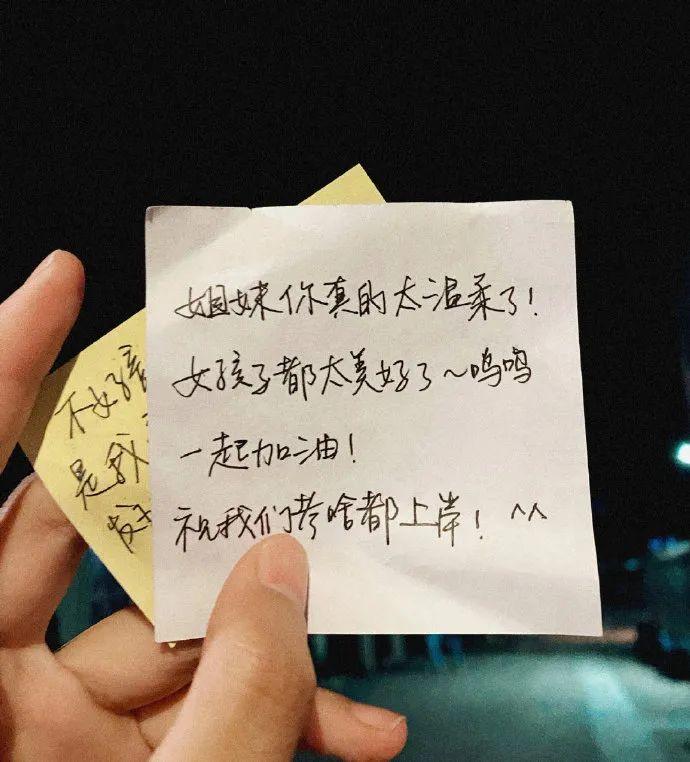 姐妹你真的太温柔了!
女孩子都太美好了~呜呜
一起加油!
祝我们考啥都上岸! ^^
不
是我